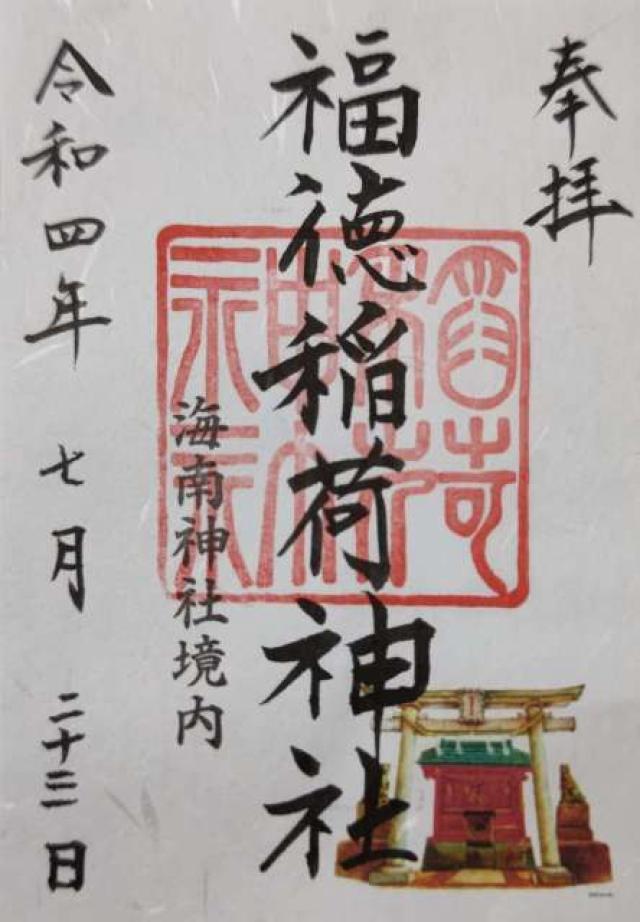 奉拝
福徳稲荷神社
海南神社境内
令和四年 七月 二十三日